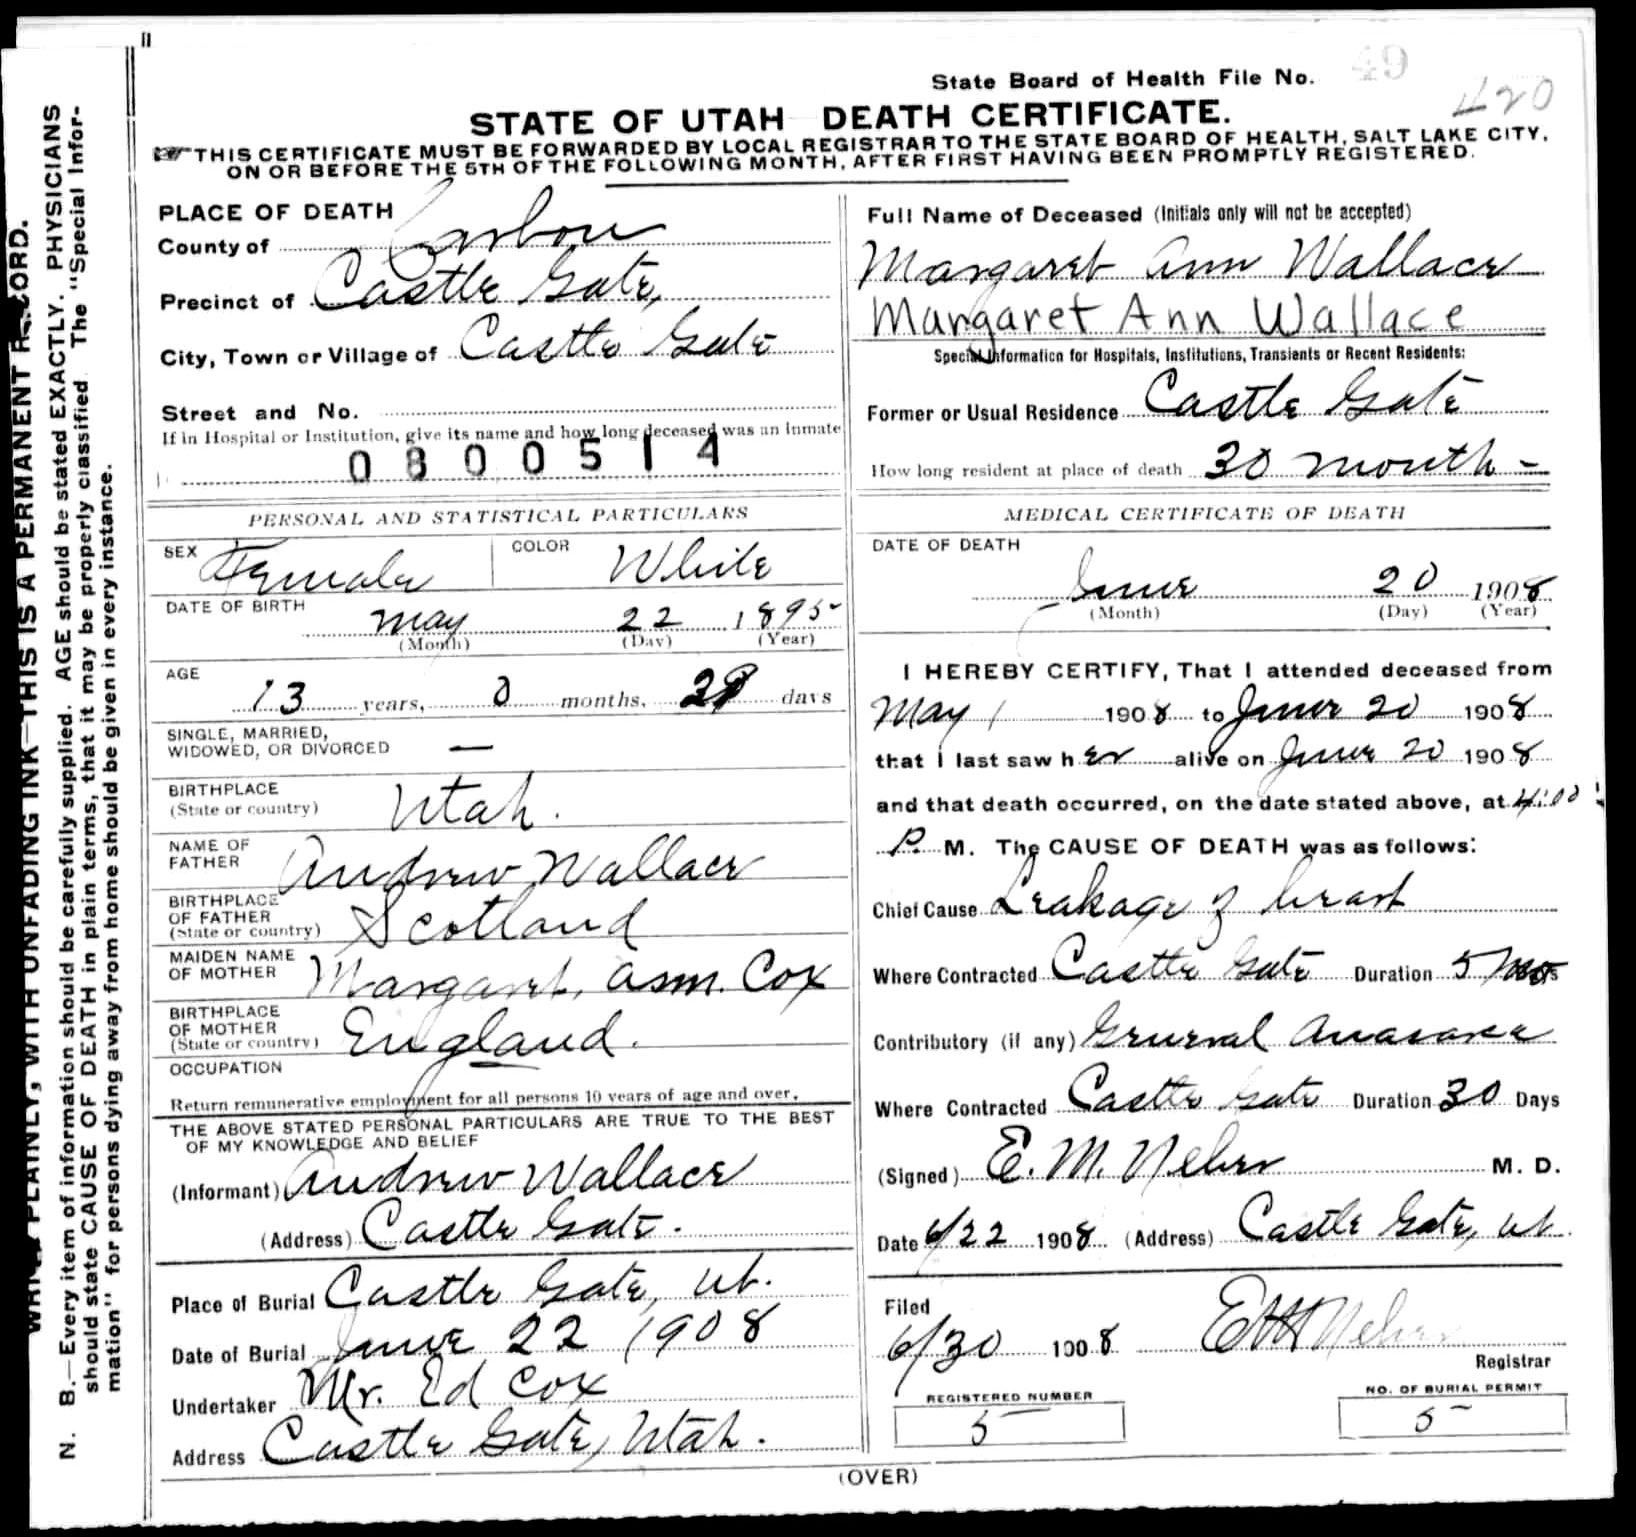 State Board of Health File No. 49
420
STATE OF UTAH DEATH CERTIFICATE.
THIS CERTIFICATE MUST BE FORWARDED BY LOCAL REGISTRAR TO THE STATE BOARD OF HEALTH, SALT LAKE CITY,
ON OR BEFORE THE 5TH OF THE FOLLOWING MONTH, AFTER FIRST HAVING BEEN PROMPTLY REGISTERED.
WRITE PLAINLY, WITH UNFADING INK—THIS IS A PERMANENT RECORD.
N. B.—Every item of information should be carefully supplied. AGE should be stated EXACTLY. PHYSICIANS
should state CAUSE OF DEATH in plain terms, that it may be properly classified The "Special Infor-
mation" for persons dying away from home should be given in every instance.
PLACE OF DEATH
County of Carbon
Precinct of Castle Gate,
City, Town or Village of Castle Gate
Street and No.
If in Hospital or Institution, give its name and how long deceased was an inmate
0800514
PERSONAL AND STATISTICAL PARTICULARS
SEX Female COLOR White
DATE OF BIRTH May 22 1895
(Month) (Day) (Year)
AGE 13 years, 0 months, 29 days
SINGLE, MARRIED,
WIDOWED, OR DIVORCED —
BIRTHPLACE
(State or country) Utah.
NAME OF
FATHER Andrew Wallace
BIRTHPLACE
OF FATHER
(State or country) Scotland
MAIDEN NAME
OF MOTHER Margaret, Cox
BIRTHPLACE
OF MOTHER
(State or country) England.
OCCUPATION
Return remunerative employment for all persons 10 years of age and over.
THE ABOVE STATED PERSONAL PARTICULARS ARE TRUE TO THE BEST
OF MY KNOWLEDGE AND BELIEF
(Informant) Andrew Wallace
(Address) Castle Gate.
Place of Burial Castle Gate, Ut.
Date of Burial June 22 1908
Undertaker Mr. Ed Cox
Address Castle Gate, Utah.
Full Name of Deceased (Initials only will not be accepted)
Margaret Ann Wallace
Margaret Ann Wallace
Special Information for Hospitals, Institutions, Transients or Recent Residents:
Former or Usual Residence Castle Gate
How long resident at place of death 30 month -
MEDICAL CERTIFICATE OF DEATH
DATE OF DEATH
June 20 1908
(Month) (Day) (Year)
I HEREBY CERTIFY, That I attended deceased from
May 1 1908 to June 20 1908
that I last saw her alive on June 20 1908
and that death occurred, on the date stated above, at 4:00
P. M. The CAUSE OF DEATH was as follows:
Chief Cause Leakage of heart
Where Contracted Castle Gate Duration 5 mos
Contributory (if any) General Anasarca
Where Contracted Castle Gate Duration 30 Days
(Signed) E. M. Neher M. D.
Date 6/22 1908 (Address) Castle Gate, Ut.
Filed
6/30 1908 E M Neher
Registrar
REGISTERED NUMBER
5
NO. OF BURIAL PERMIT
5
(OVER)